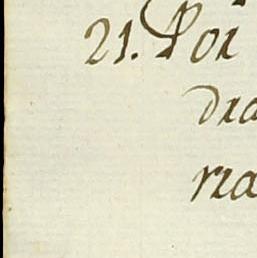 21. Poi
dia
ria